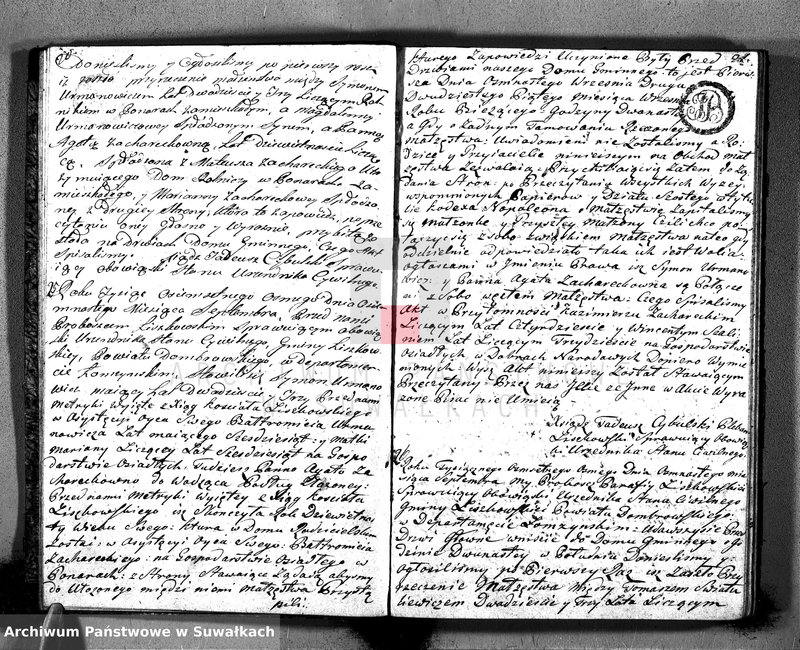 Donieslismy y Ogłosilismy po pierwszy raz
iż zaszło przyrzeczenie małżeństwa między Symonem
Urmonowiczem Lat Dwadziescia y Trzy Liczącym Rol
nikiem w Ponarach zamieszkałym, a Magdaleny
Urmonowiczowey Spłodzonym Synem, a Panną
Agatą Zacharechowną, Lat dziewiętnascie Licząc
cą. Spłodzona z Mateusza Zachareckiego
mującego Dom Rolniczy w Ponarach Za
mieszkałego, y Maryanny Zacharechowey Spłodzo
ney z drugiey Strony, która to zapowiedź, po prze
czytaniu oney Głośno y Wyraźnie, przybita zo
stała na drzwiach Domu Gminnego, Czego Akt
Spisalismy. Xiądz Tadeusz Cybulski Sprawu
iący obowiązki Stanu Urzędnika Cywilnego
Roku Tysiąc Osiemsetnego Osmego Dnia Osie
mnastego Miesiąca Septembra, Przed nami
Proboszczem Liszkowskim Sprawuiącym obowią
zki Urzędnika Stanu Cywilnego Gminy Liszkow
skiey, Powiatu Dombrowskiego w Departamen
cie Łomżynskim. Stawił się Symon Urmano
wicz maiący Lat Dwadziescia y Trzy Przed nami
Metryki Wyięte z Xiąg Koscioła Liszkowskiego
w Asystęcyi Oyca Swego Bartłomieia Urma
nowicza Lat maiącego Szesdziesiąt: y Matki
Maryanny Liczącey Lat Szesdziesiąt na Gospo
darstwie Osiadłych: Tudziesz Panna Agata Za
charechowna do Wodząca Podług Złożoney
Przed nami Metryki Wyiętey z Xiąg Koscioła
Liszkowskiego iż Skonczyła Rok Dziewiętnas
ty Wieku Swego: która w domu Rodzicielskim
Zostaie: w Asystęcyi Oyca Swego: Bartłomieia
Zachareckiego: na Gospodarstwie Osiadłego w
Ponarach: z Strony, Stawaiące Żądaią abysmy
do Ułożonego między niemi Małżeństwa Przystą
pili:
którego Zapowiedzi Uczynione Były Przed
Drzwiami naszego Domu Gminnego: to jest Pierw
sza Dnia Osmnastego Wrzesnia Druga
Dwudziestego Piątego Miesiąca Wrzes
Roku Bieżącego o Godzinie Dwunast
A Gdy o Żadnym Tamowaniu Rzeczonego
Małżęstwa: Uwiadomieni nie Zostalismy a Ro
dzice y Przyiaciele niniejszym na Obchod Mał
żęstwa Zezwalaią: Przychylaiącsię Zatem do Żą
dania Stron: po Przeczytaniu Wszystkich Wyżey
wspomnionych Papierow y Działu Szostego w Tytu
le Kodexu Napoleona o Małżęstwie Zapitalismy
się Małżonka y Przyszłey Małżony ieżeli chcą po
łączyć się z sobą związkiem Małżęstwa na co gdy
oddzielnie odpowiedziało taka ich iest Wola:
ogłaszamy w Jmieniu Prawa iż Symon Urmano
wicz: y Panna Agata Zacharechowna są Połącze
ni z Sobą węzłem Małżęstwa: Czego Spisalismy
Akt w Przytomnosci Kazimierza Zachareckim
Liczącym Lat Cztyrdziescie y Wincentym
Lat Liczącym Trzydziescie na Gospodarstwie
Osiadłych w Dobrach Narodowych Doniero Wymie
nionych: Wyż Akt niniejszy Został Stawaiącym
Przeczytany: Przez nas Jlże ze Jnne w Akcie Wyra
żone Pisac nie Umieią
Xiądz Tadeusz Cybulski Pleban
Liszkowski Sprawuiący Obowią
zki Urzędnika Stanu Cywilnego
Roku Tysięcznego Osmsetnego Osmego Dnia Osmnastego mie
siąca Septembra My Proboszcz Parafii Liszkowskiey
Sprawuiący Obowiązki Urzędnika Stanu Cywilnego
Gminy Liszkowskiey Powiatu Dombrowskiego
w Departamęcie Łomzynskim: Udawszysie Przed
Drzwi Głowne wniscie do Domu Gminnego o go
dzinie Dwunastey w Południe Donieslismy y
ogłosilismy po Pierwszy Raz iż Zaszło Przy
rzeczenie Małżęstwa Między Tomaszem Swiatu
liewiczem Dwadziescie y Trzy Lata Liczącym
ARCHIWUM PAŃSTWOWE
W SUWAŁKACH
Archiwum Państwowe w Suwałkach